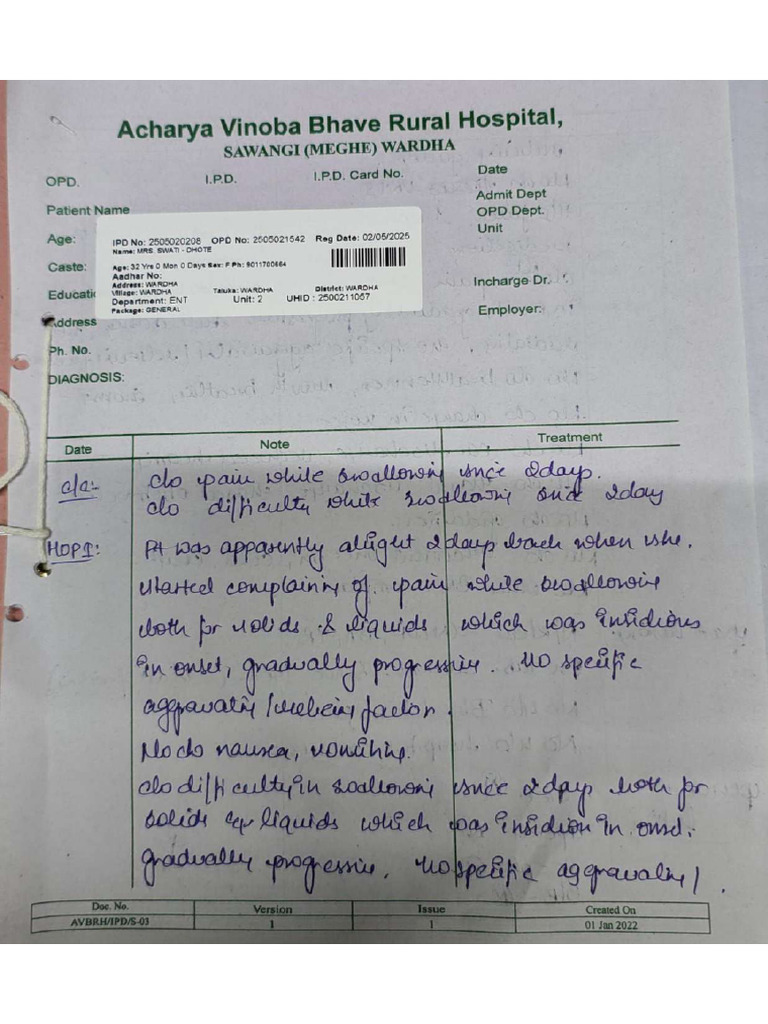 Acharya Vinoba Bhave Rural Hospital,
SAWANGI (MEGHE) WARDHA
OPD. I.P.D. I.P.D. Card No. Date
Admit Dept
Patient Name OPD Dept.
Unit
Age:
IPD No: 2505020208 OPD No: 2505021542 Reg Date: 02/05/2025
Name: MRS. SWATI - DHOTE
Age: 32 Yrs 0 Mon 0 Days Sex: F Ph: 9011700664
Aadhar No:
Address: WARDHA
Village: WARDHA Taluka: WARDHA District: WARDHA
Department: ENT Unit: 2 UHID : 2500211057
Package: GENERAL
Caste:
Educati Incharge Dr.
Address Employer:
Ph. No.
DIAGNOSIS:
Date Note Treatment
c/c:- c/o pain while swallowing since 2days.
c/o difficulty while swallowing since 2days
HOPI: Pt was apparently alright 2days back when she
started complaining of pain while swallowing
both for solids & liquids which was insidious
in onset, gradually progressive. No specific
aggravating / relieving factor.
No c/o nausea, vomiting.
c/o difficulty in swallowing since 2days both for
solids & liquids which was insidious in onset.
gradually progressive. No specific aggravating /
Doc. No. Version Issue Created On
AVBRH/IPD/S-03 1 1 01 Jan 2022